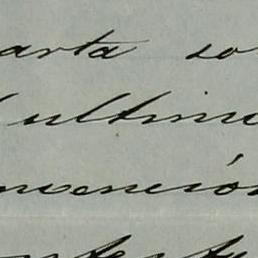 arta so
l ultimo
nvención